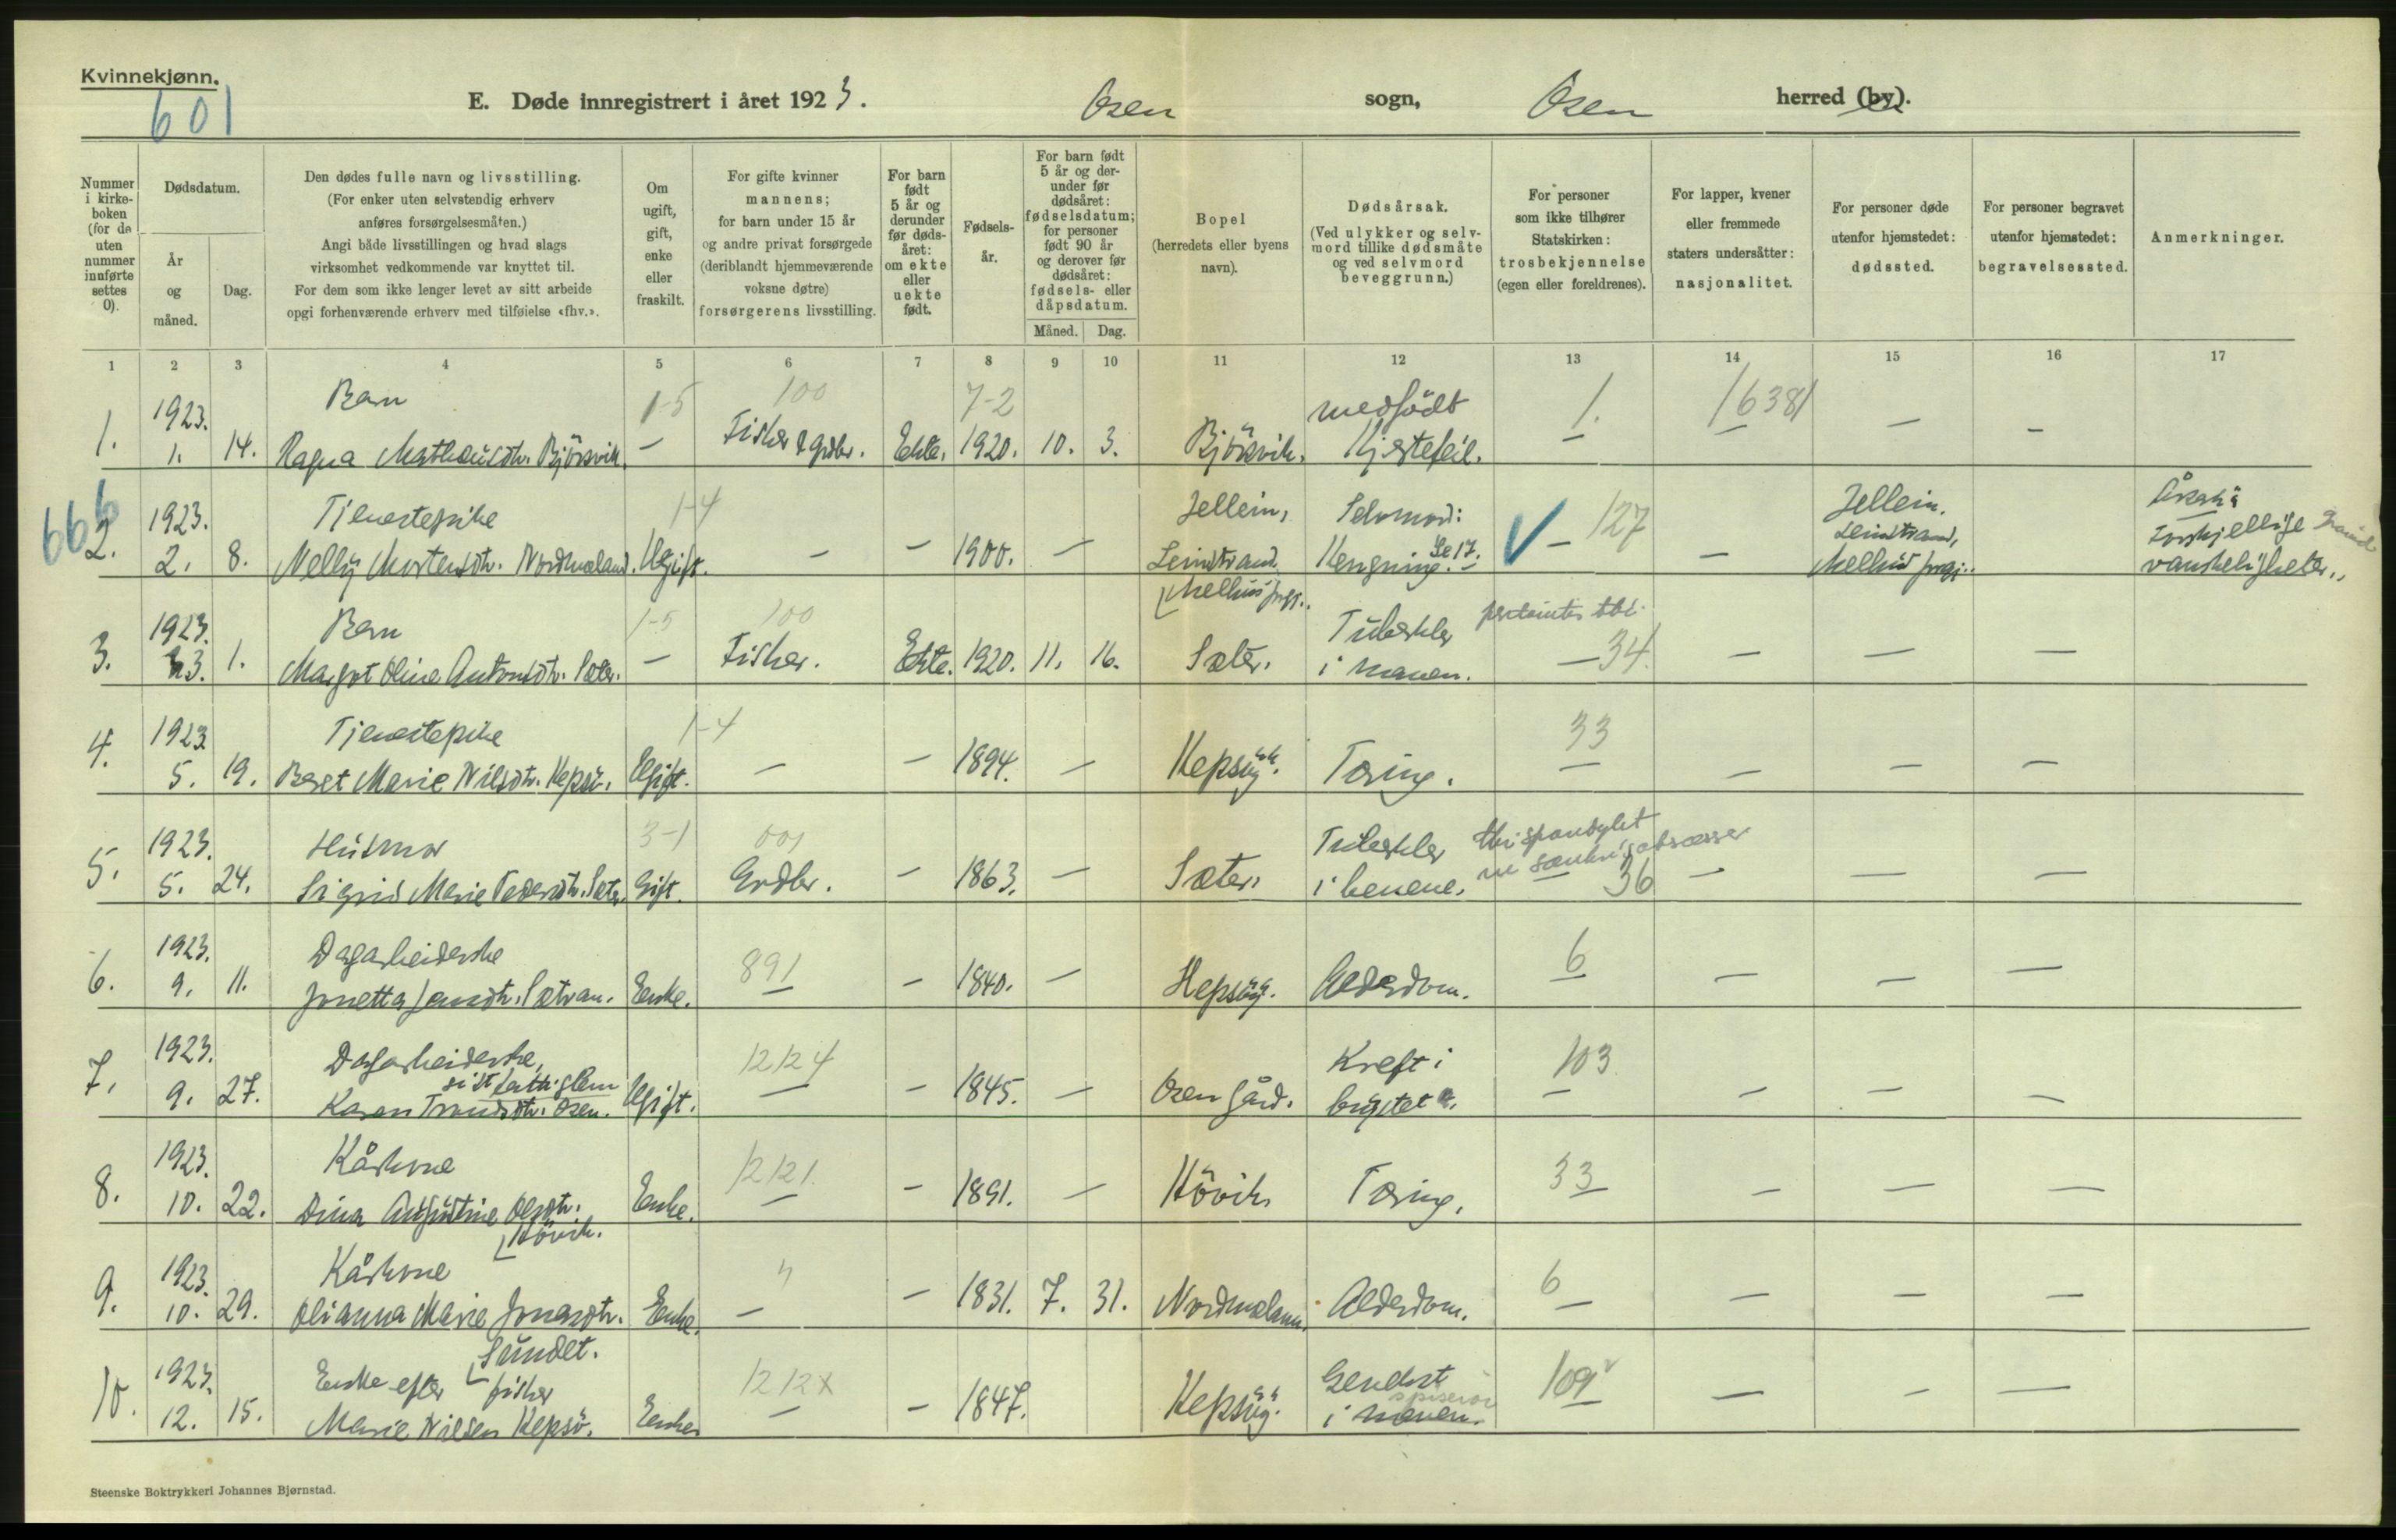 Kvinnekjønn.
601
E. Døde innregistrert i året 1923.
Osen sogn, Osen herred (by).
Nummer i kirke-boken (for de uten nummer innførte settes 0).
Dødsdatum.
År og måned.
Dag.
Den dødes fulle navn og livsstilling.
(For enker uten selvstendig erhverv
anføres forsørgelsesmåten.)
Angi både livsstillingen og hvad slags
virksomhet vedkommende var knyttet til.
For dem som ikke lenger levet av sitt arbeide
opgi forhenværende erhverv med tilføielse «fhv.».
Om ugift, gift, enke eller fraskilt.
For gifte kvinner
mannens;
for barn under 15 år
og andre privat forsørgede
(deriblandt hjemmeværende
voksne døtre)
forsørgerens livsstilling.
For barn født 5 år og derunder før døds-året: om ekte eller uekte født.
Fødsels-år.
For barn født 5 år og der-under før dødsåret: fødselsdatum; for personer født 90 år og derover før dødsåret: fødsels- eller dåpsdatum.
Måned. Dag.
Bopel
(herredets eller byens
navn).
Dødsårsak.
(Ved ulykker og selv-
mord tillike dødsmåte
og ved selvmord
beveggrunn.)
For personer
som ikke tilhører
Statskirken:
trosbekjennelse
(egen eller foreldrenes).
For lapper, kvener
eller fremmede
staters undersåtter:
nasjonalitet.
For personer døde
utenfor hjemstedet:
dødssted.
For personer begravet
utenfor hjemstedet:
begravelsessted.
Anmerkninger.
1 2 3 4 5 6 7 8 9 10 11 12 13 14 15 16 17
1923. Barn 1-5 100 7-2 medfödt 1. 16381
1. 1. 14. Ragna Matheusdtr. Björsvik. — Fisker & grdbr. Ekte. 1920. 10. 3. Björsvik. Hjertefeil. — — — —
666
1923. Tjenestepike 1-4 Jellein, Selvmord: 127 Jellein, Årsak:
2. 2. 8. Nelly Mortensdtr. Nordmeland. Ugift. — — 1900. — Leinstrand Hengning. Se 17. — — Leinstrand, Melhus prgj. Forskjellige vanskeligheter.
Melhus prgj.
1923. Barn 1-5 100 Tuberkler
3. 3. 1. Margot Oline Antonsdtr. Sæter. — Fisker. Ekte. 1920. 11. 16. Sæter. i maven. — 34. — — —
1923 Tjenestepike 1-4 33
4. 5. 19. Beret Marie Nilsdtr. Kepsö. Ugift. — — 1894. — Kepsöy. Tæring. — — — —
1923. Husmor 3-1 001 Tuberkler
5. 5. 24. Sigrid Marie Pedersdtr. Sæter. Gift. Grdbr. — 1863. — Sæter. i benene. — 36 — — —
1923. Dagarbeiderske 891 6
6. 9. 11. Jonetta Jensdtr. Sætran. Enke. — — 1840. — Hepsöy. Alderdom. — — — —
1923. Dagarbeiderske, 12124 Kreft i 103
sist fattiglem
7. 9. 27. Karen Trondsdtr. Osen. Ugift. — — 1845. — Osen gård. brystet. — — — —
1923. Kårkone 12121. 33
8. 10. 22. Dina Augustine Olsdtr. Enke. — — 1891. — Hövik Tæring. — — — —
Hövik.
1923. Kårkone 6
9. 10. 29. Olianna Marie Jonasdtr. Enke. — — 1831. 7. 31. Nordmeland. Alderdom. — — — —
Sundet.
1923. Enke efter fisker 1212x 109
10. 12. 15. Marie Nilsen Kepsö. Enke — — 1847. Kepsöy. i maven. — — — —
Steenske Boktrykkeri Johannes Bjørnstad.